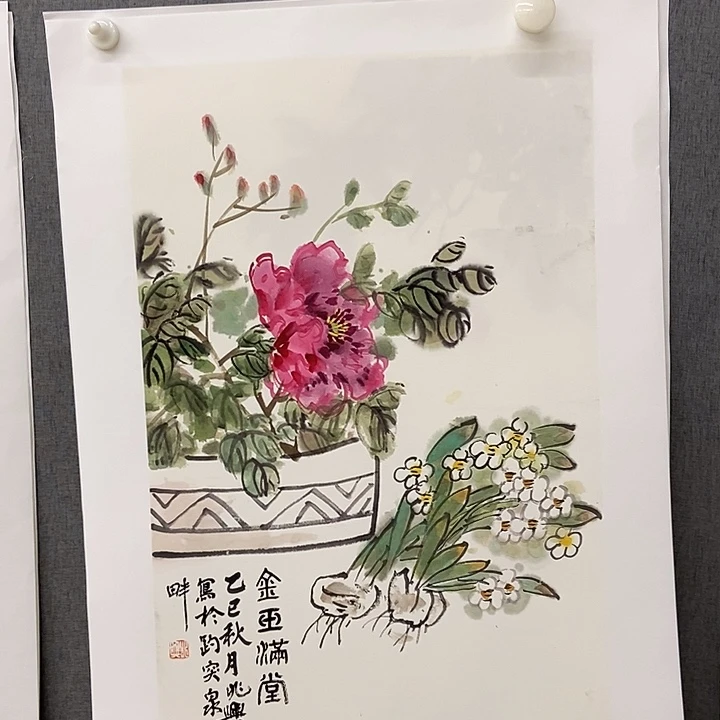 金玉满堂
乙巳秋月兆兴
写於趵突泉
畔